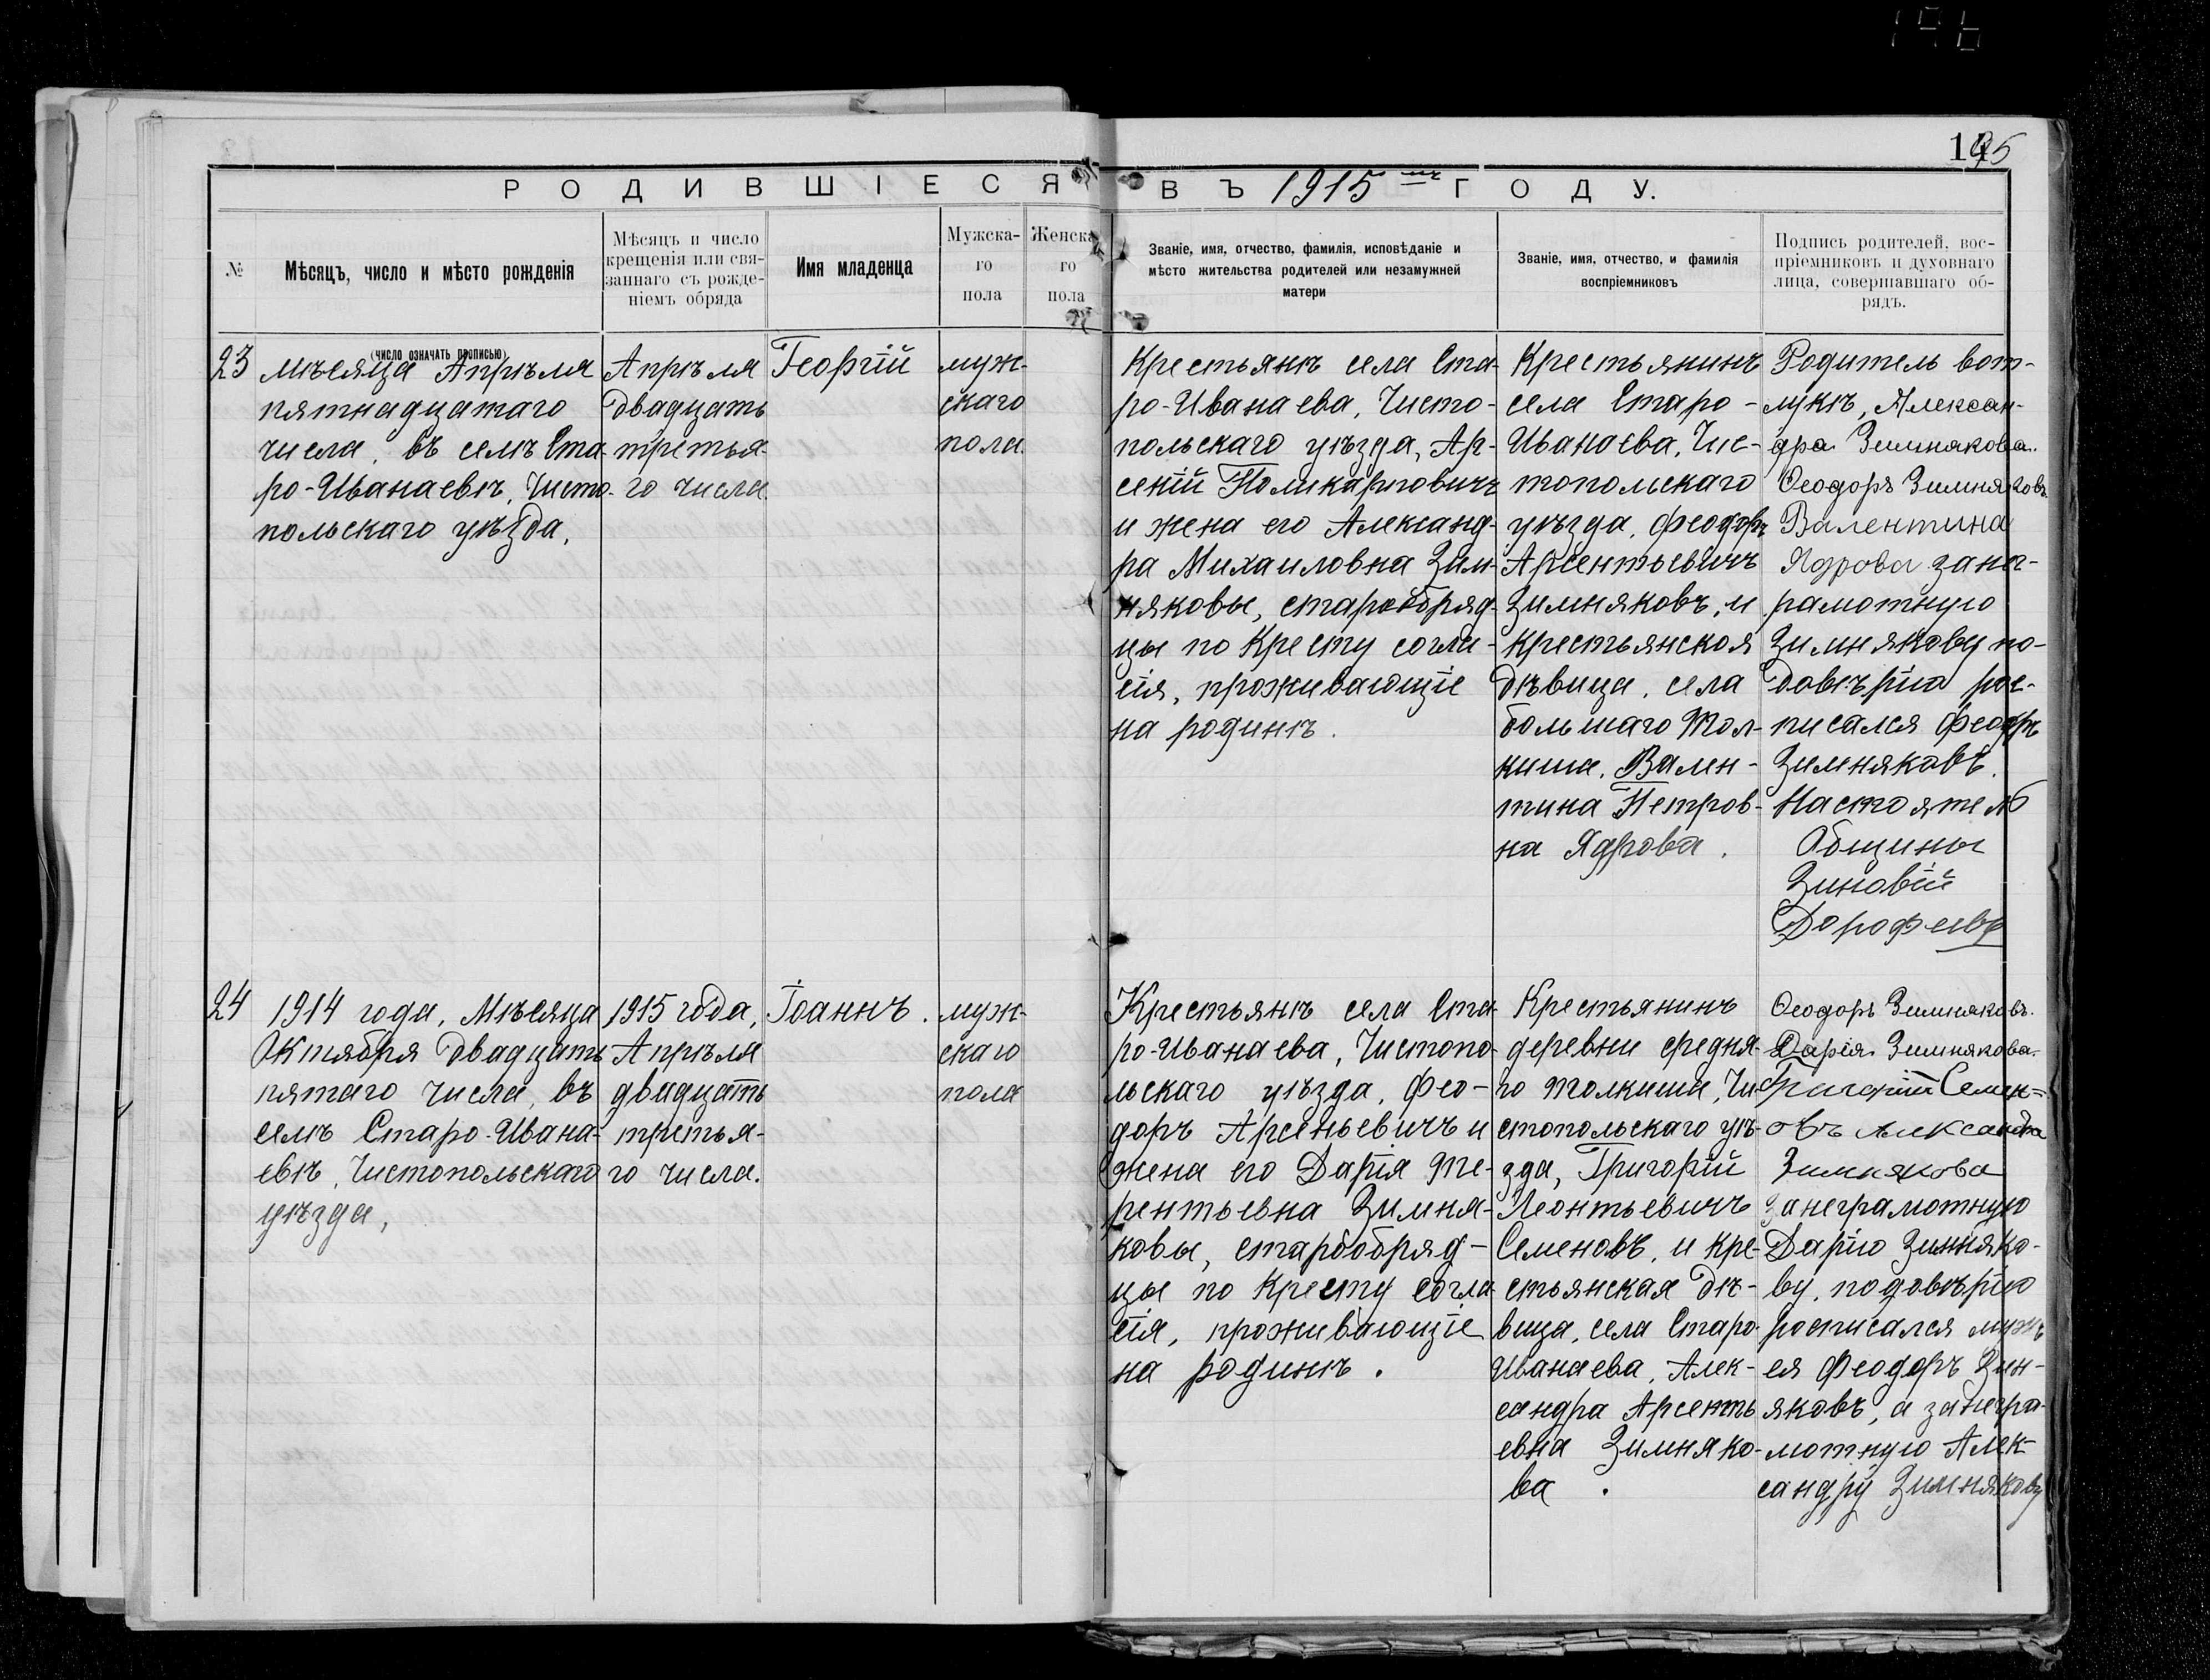 195
РОДИВШІЕСЯ ВЪ 1915мъ ГОДУ.
№
Мѣсяцъ, число и мѣсто рожденія
Мѣсяцъ и число
крещенія или свя-
заннаго съ рожде-
ніемъ обряда
Имя младенца
Мужска-
го
пола
Женска-
го
пола
Званіе, имя, отчество, фамилія, исповѣданіе и
мѣсто жительства родителей или незамужней
матери
Званіе, имя, отчество, и фамилія
воспріемниковъ
Подпись родителей, вос-
пріемниковъ и духовнаго
лица, совершавшаго об-
рядъ.
(число означать прописью)
23
мѣсяца Апрѣля
пятнадцатаго
числа, въ селѣ Ста-
ро-Иванаевѣ, Чисто-
польскаго уѣзда,
Апрѣля
двадцать
третья-
го числа.
Георгій
муж-
скаго
пола.
Крестьянѣ села Ста-
ро-Иванаева, Чисто-
польскаго уѣзда, Ар-
сеній Поликарповичъ
и жена его Александ-
ра Михаиловна Зим-
няковы, старообряд-
цы по Кресту согла-
сія, проживающіе
на родинѣ.
Крестьянинъ
села Старо-
Иванаева, Чис-
топольскаго
уѣзда, Феодоръ
Арсентьевичъ
Зимняковъ, и
крестьянская
дѣвица, села
большаго Тол-
киша, Вален-
тина Петров-
на Ядрова.
Родитель вот-
лукъ, Алексан-
дра Зимнякова.
Ѳеодоръ Зимняковъ
Валентина
Ядрова занег-
рамотную
Зимнякову по-
довѣрію рос-
писался Феодоръ
Зимняковъ.
Настоятель
Общины
Зиновій
Дорофеевъ
24
1914 года, Мѣсяца
Октября двадцать
пятаго числа, въ
селѣ Старо-Ивана-
евѣ, Чистопольскаго
уѣзда,
1915 года,
Апрѣля
двадцать
третья-
го числа.
Іоаннъ.
муж-
скаго
пола
Крестьянѣ села Ста-
ро-Иванаева, Чистопо-
льскаго уѣзда, Фео-
доръ Арсеньевичъ и
жена его Дарія Те-
рентьевна Зимня-
ковы, старообряд-
цы по Кресту согла-
сія, проживающіе
на родинѣ.
Крестьянинъ
деревни средня-
го Толкиша, Чи-
стопольскаго уѣ-
зда, Григорій
Леонтьевичъ
Семеновъ, и кре-
стьянская дѣ-
вица, села Старо-
Иванаева, Алек-
сандра Арсенть-
евна Зимняко-
ва.
Ѳеодоръ Зимняковъ.
Дарія Зимнякова.
Григорій Семен=
овъ Александра
Зимнякова
занеграмотную
Дарію Зимняко-
ву, подовѣрію
росписался мужъ
ея Феодоръ Зим-
няковъ, а занегра-
мотную Алек-
сандру Зимнякову